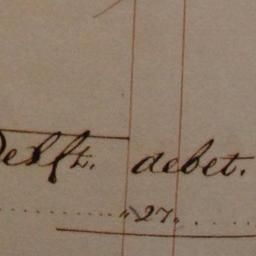 Delft. debet.
„27„